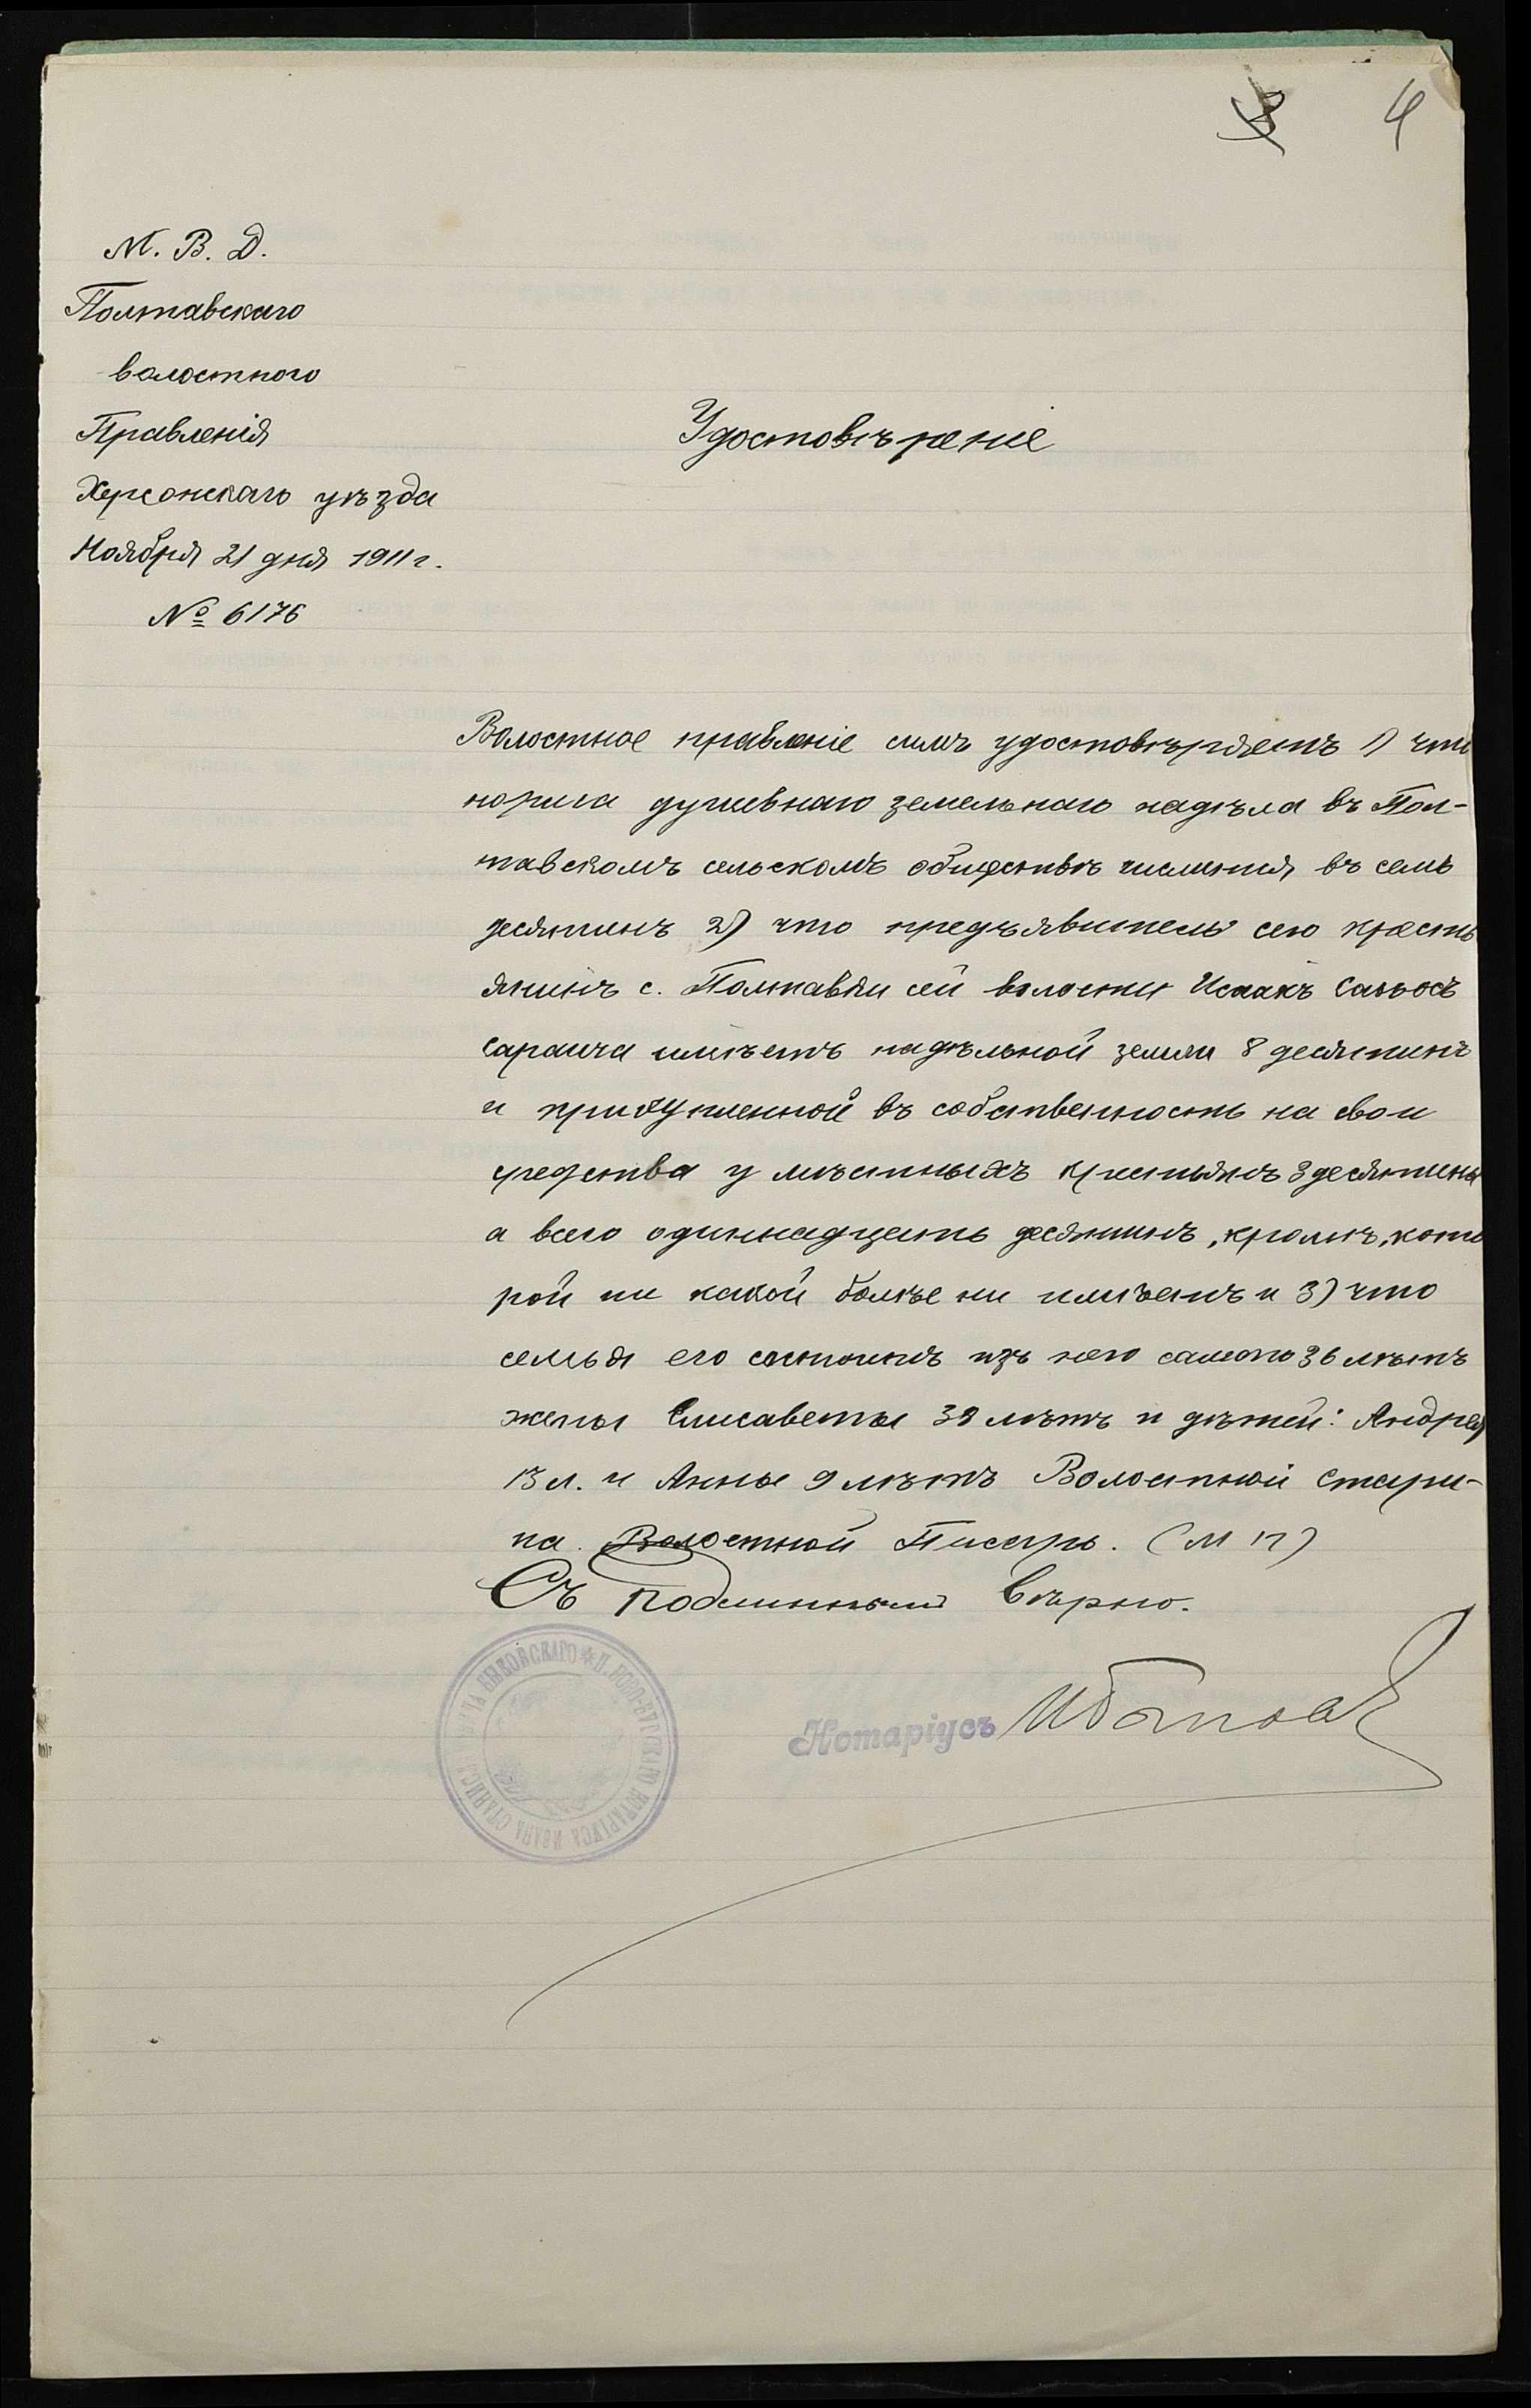 4
М. В. Д.
Полтавскаго
волостного
Правленія
Херсонскаго уѣзда
Ноября 21 дня 1911 г.
№ 6176
Удостовѣреніе
Волостное правленіе симъ удостовѣряетъ 1) что
норма душевнаго земельнаго надѣла въ Пол-
тавскомъ сельскомъ обществѣ числится въ семь
десятинъ 2) что предъявитель сего кресть
янинъ с. Полтавки сей волости Исаакъ
имѣетъ надѣльной земли 8 десятинъ
и прикупленной въ собственность на свои
средства у мѣстныхъ крестьянъ 3 десятины
а всего одиннадцать десятинъ, кромѣ, кото
рой ни какой болѣе ни имѣетъ и 3) что
семья его состоитъ изъ него самого 36 лѣтъ
жены Елисаветы 38 лѣтъ и дѣтей: Андрея
13 л. и Анны 9 лѣтъ Волостной Стари-
на. Волостной Писарь. (М П)
Съ подлиннымъ вѣрно.
Нотаріусъ
НОТАРІУСА ИВАНА СТАНИСЛ ВЫКОВСКАГО